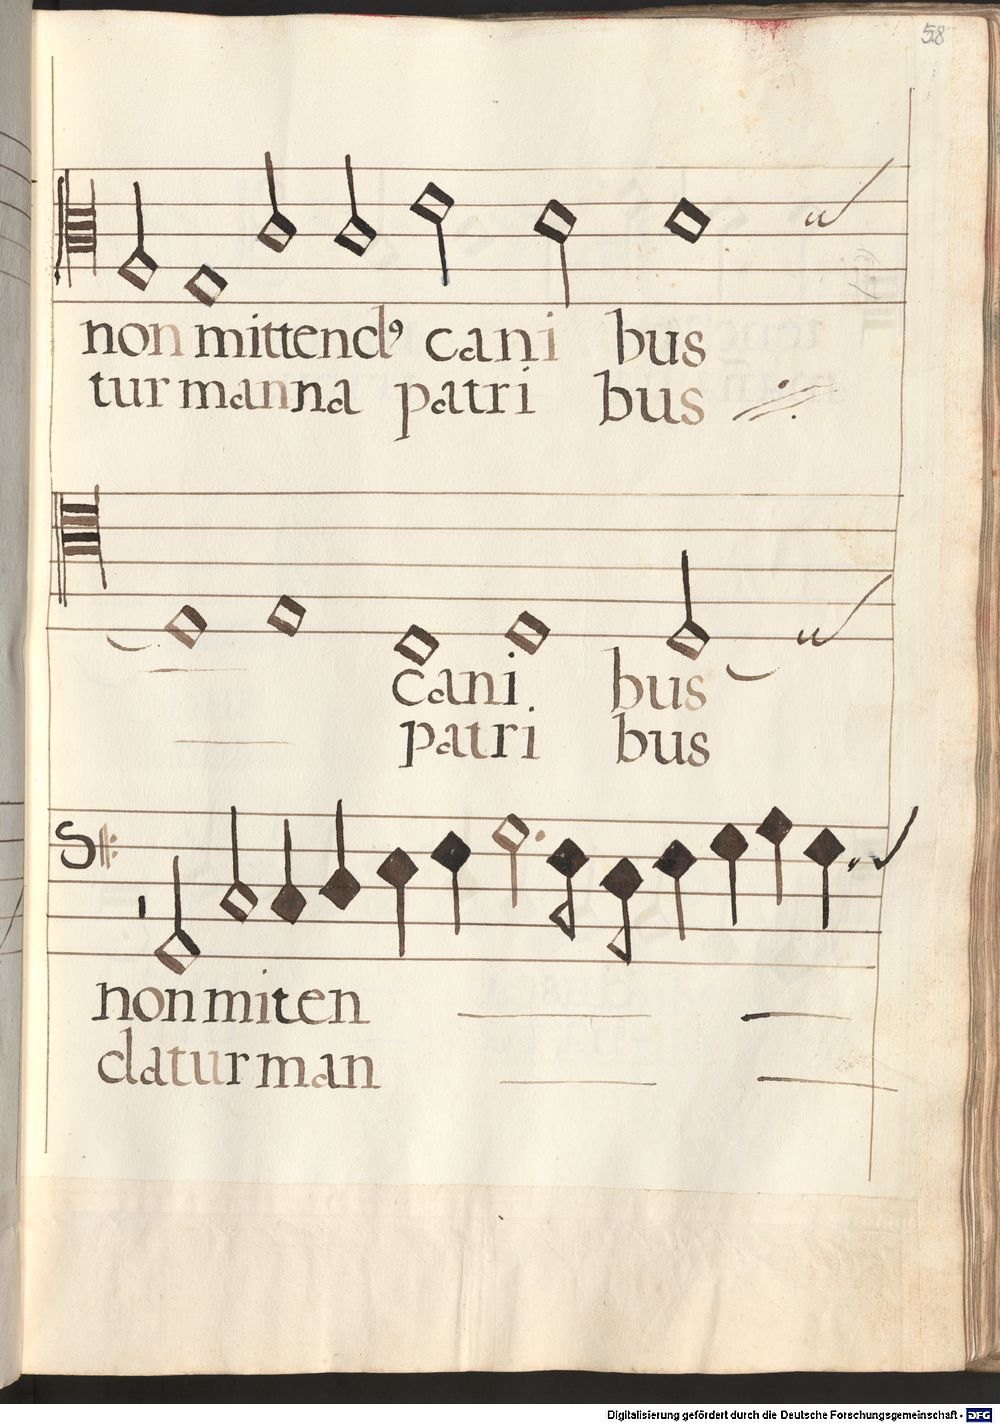 58
non mittendꝰ cani bus
tur manna patri bus
cani bus
patri bus
non miten
datur man
Digitalisierung gefördert durch die Deutsche Forschungsgemeinschaft - DFG